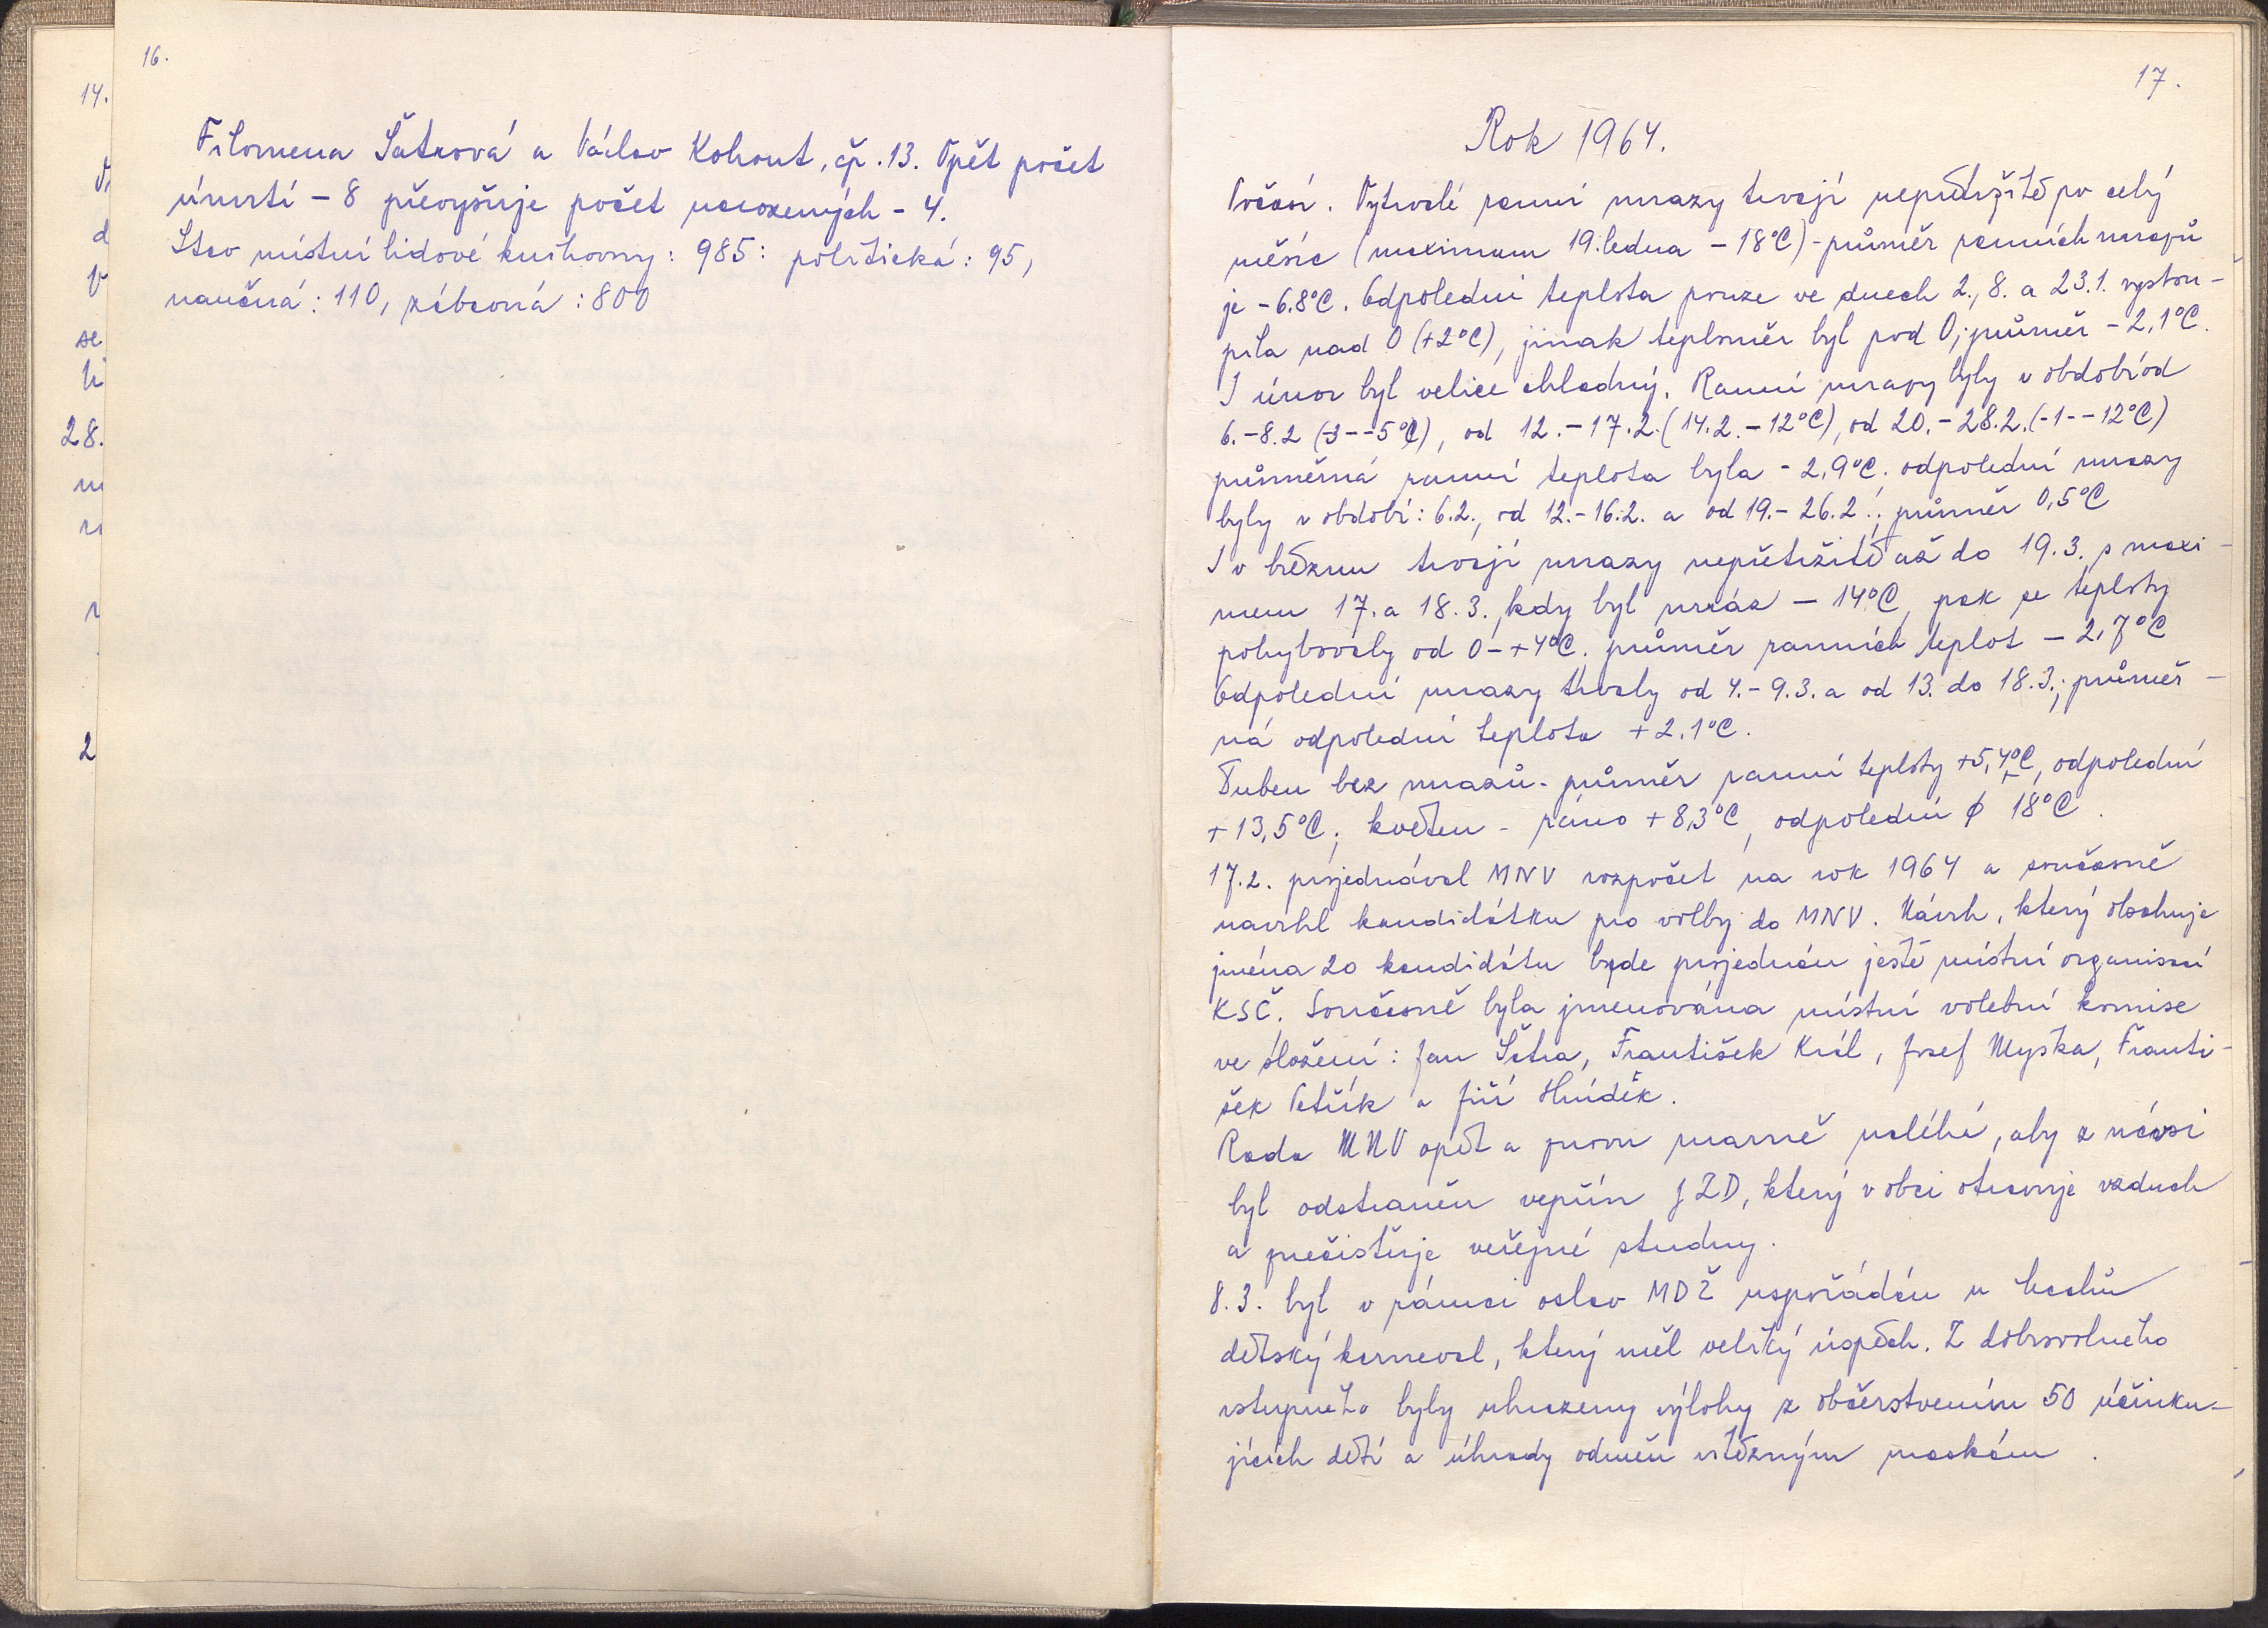 16.
Filomena Šátrová a Václav Kohout, čp. 13. Opět počet
úmrtí - 8 převyšuje počet narozených - 4.
Stav místní lidové knihovny: 985: politická: 95,
naučná: 110, zábavná: 800
14.
d
se
28.
2
17.
Rok 1964.
Počasí. Vytrvalé ranní mrazy trvají nepřetržitě po celý
měsíc (maximum 19. ledna - 18°C) - průměr ranních mrazů
je - 6.8°C. Odpolední teplota pouze ve dnech 2., 8. a 23.1. vystou-
pila nad 0 (+2°C), jinak teploměr byl pod 0; průměr - 2,1°C.
I únor byl velice chladný. Ranní mrazy byly v období od
6. - 8.2 (-3 - -5°C), od 12. - 17.2. (14.2. - 12°C), od 20. - 28.2. (-1 - -12°C)
průměrná ranní teplota byla - 2,9°C. odpolední mrazy
byly v období: 6.2., od 12. - 16.2. a od 19. - 26.2.; průměr 0,5°C
I v březnu trvají mrazy nepřetržitě až do 19.3. s maxi-
mem 17. a 18.3., kdy byl mráz - 14°C, pak se teploty
pohybovaly od 0 - +4°C. průměr ranních teplot - 2,7°C
Odpolední mrazy trvaly od 4. - 9.3. a od 13. do 18.3.; průměr-
ná odpolední teplota + 2,1°C.
Duben bez mrazů - průměr ranní teploty +5,4°C, odpolední
+ 13,5°C; květen - ráno + 8,3°C, odpolední ϕ 18°C.
17.2. projednával MNV rozpočet na rok 1964 a současně
navrhl kandidátku pro volby do MNV. Návrh, který obsahuje
jména 20 kandidátu bude projednán ještě místní organisací
KSČ. Současně byla jmenována místní volební komise
ve složení: Jan Šatra, František Král, Josef Myska, Franti-
šek Petřík a Jiří Hnídek.
Rada MNV opět a znovu marně naléhá, aby z návsi
byl odstraněn vepřín JZD, který v obci otravuje vzduch
a znečisťuje veřejné studny.
8.3. byl v rámci oslav MDŽ uspořádán u
dětský karneval, který měl veliký úspěch. Z dobrovolného
vstupného byly uhrazeny výlohy z občerstvením 50 účinku-
jících dětí a úhrady odměn vítězným maskám.